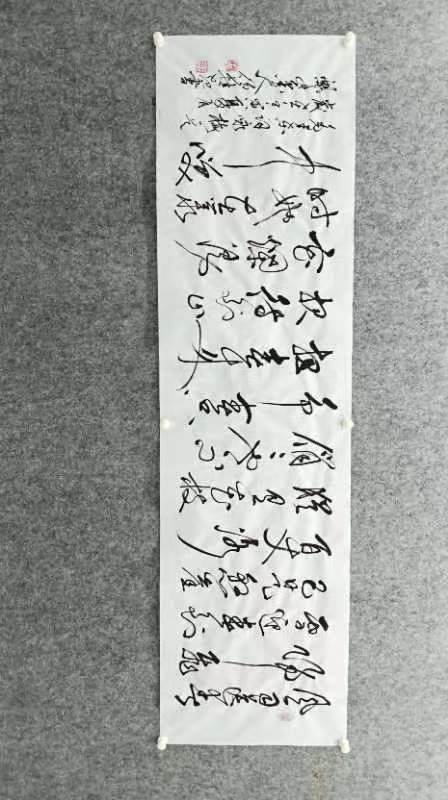 风雨送春
归飞
雪迎春到
已是悬崖
百丈冰
犹有花枝
俏〻也不
争春只
把春来
报待到山
花爛漫
时她在叢
中笑
毛主席词咏梅
歲 壬寅夏月
人 书